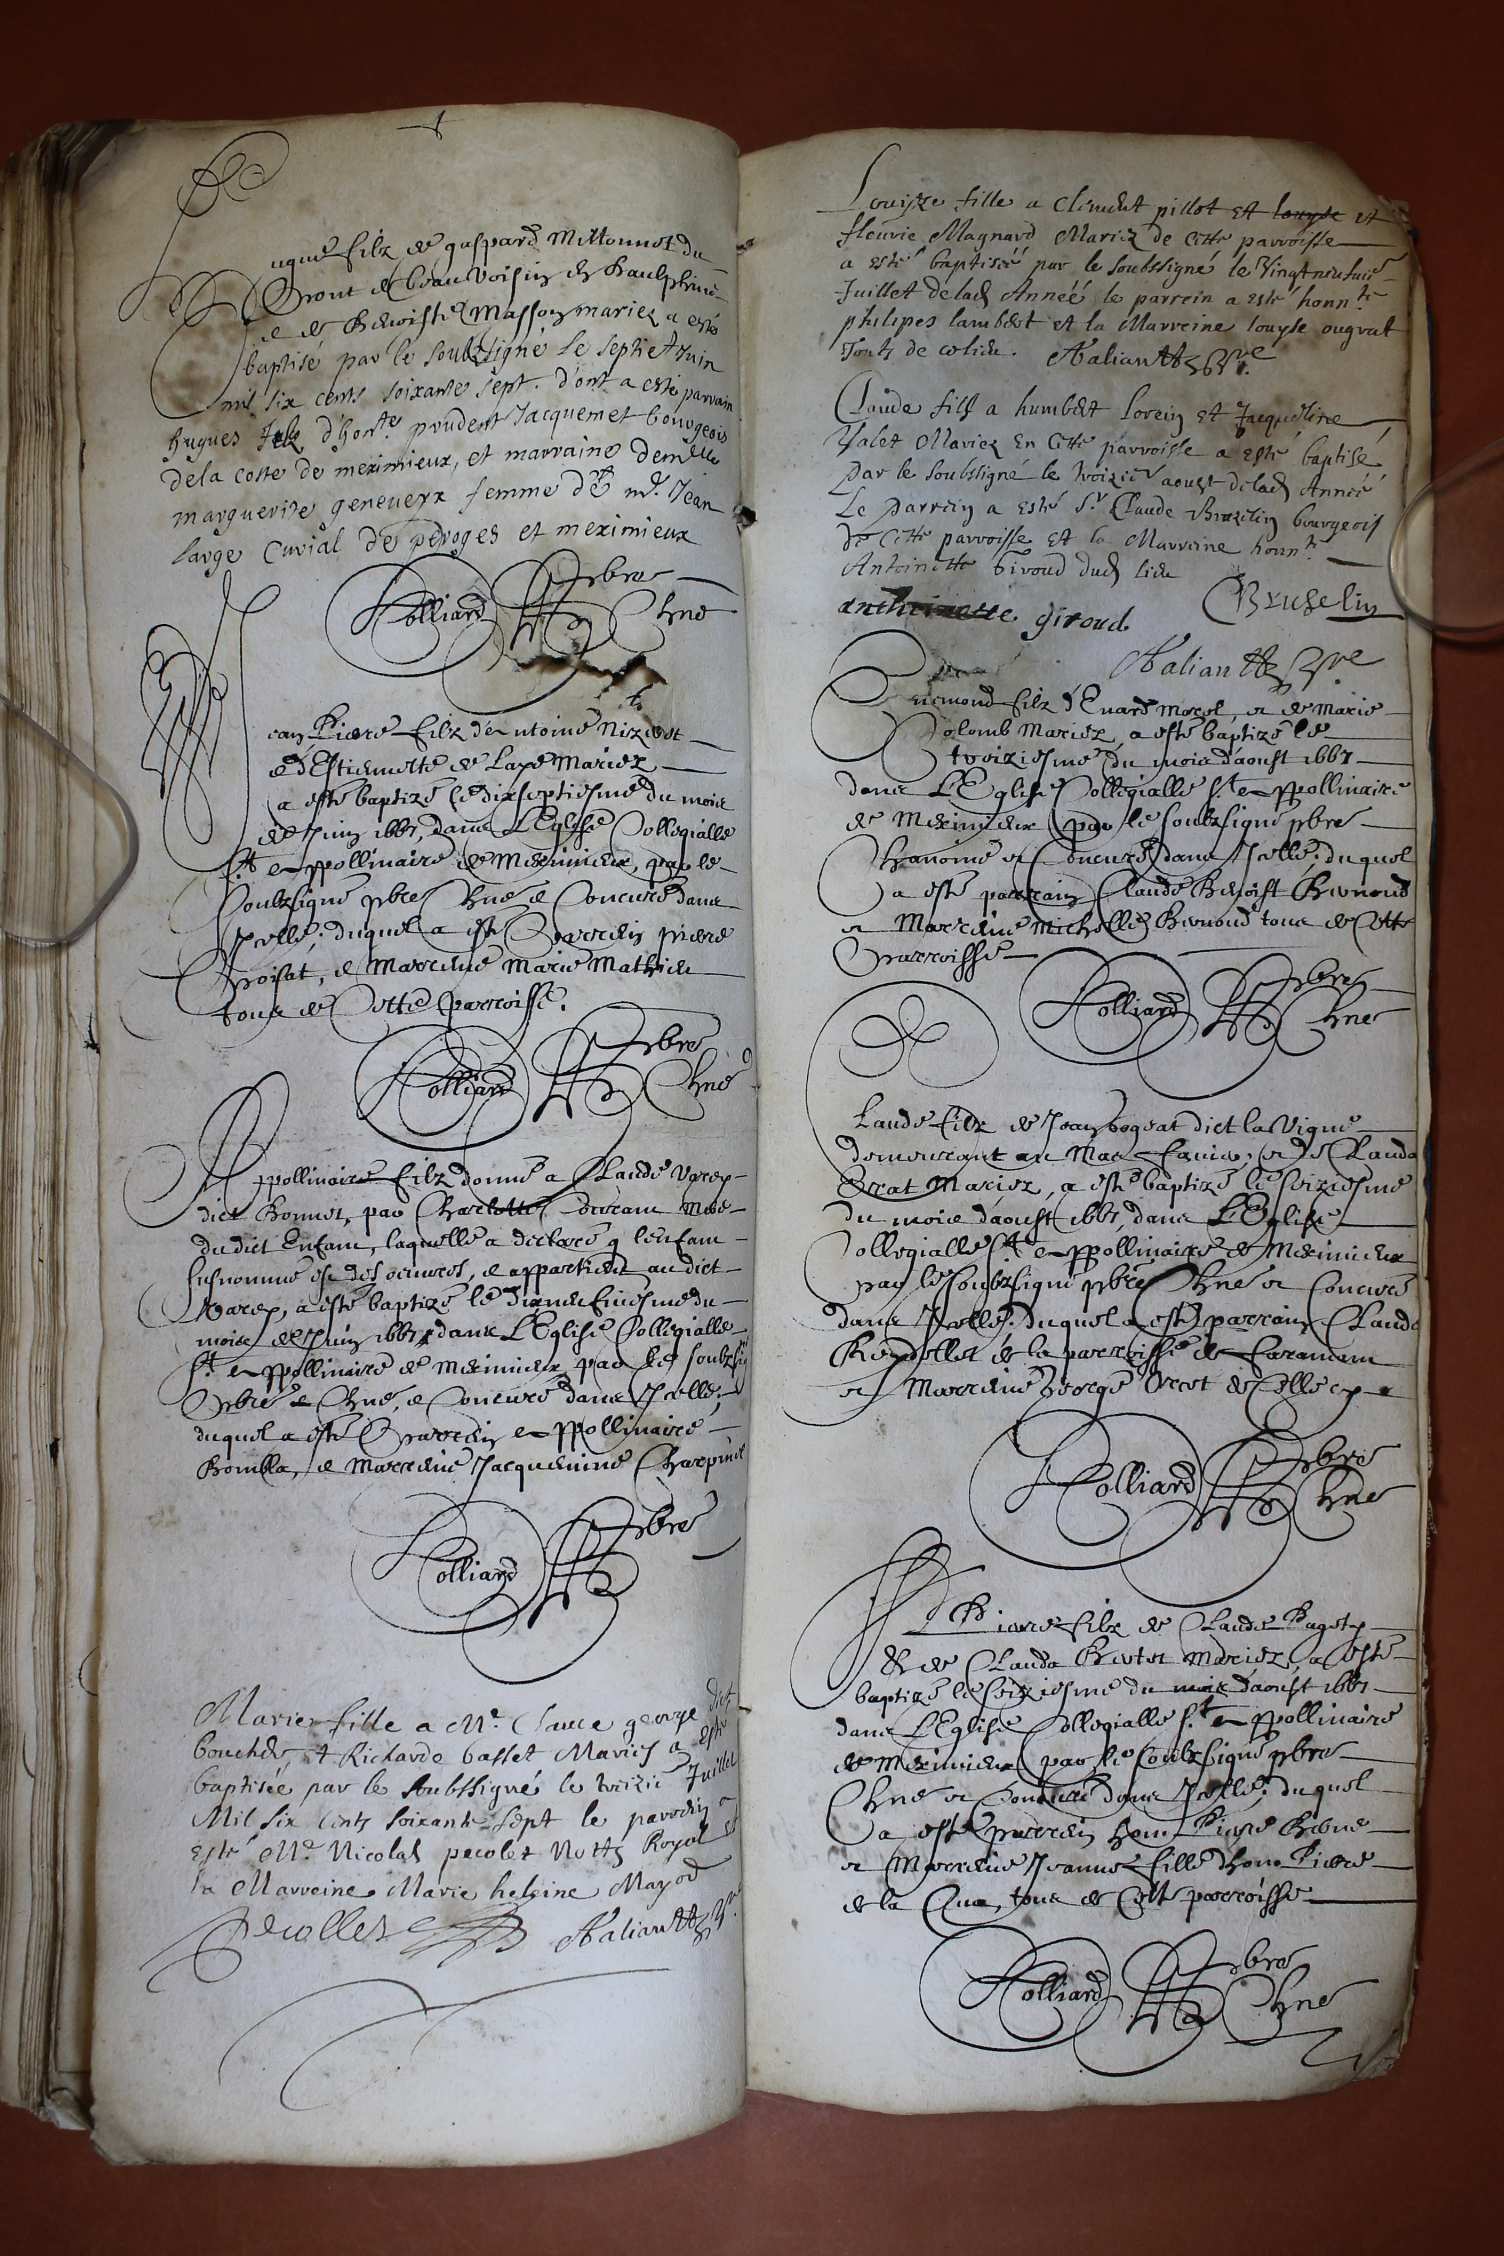 ugue filz de gaspard Millonnet du
pont de beau Voisin en Daulphiné
e de Benoiste Masson mariez a esté
baptisé par le soubzsigné le sept et Juin
mil six cents soixante sept. d'ont a esté parrain
hugues filz d'hon.te prudent Jacquemet bourgeois
de la coste de meximieux, et marraine dem.lle
marguerite geneveyx femme de m.e Jean
large Curial de peroges et meximieux
Rolliard pbre Chne
ean Piere filz d'Antoine Nizeret
e d'Estiennette de Laye Mariez
a esté baptizé le dixseptiesme du mois
de Juin 1667, dans L'Eglise Collegialle
S.t Appollinaire de Meximieux, par le
soubzsigné pbre Chne e Concuré dans
Jcelle; duquel a esté Parrein piere
Croisat, e Marreine Marie Mathieu
tous de Cette Parroisse.
Rolliard pbre Chne
Appollinaire filz donné a Claude Varey
dict Bonnet, par Charlotte Mere
du dict Enfant, laquelle a declaré q l'enfant
susnommé est des oeuvres, e appartient au dict
Varey, a esté baptizé le dixneufiesme du
mois de Juin 1667 dans L'Eglise Collegialle
S.t Appollinaire de Meximieux par le soubzsig
Pbre e Chne, e Concuré dans Jcelle;
duquel a esté Parrein Appollinaire
Bombla, e Marreine Jacquemine Charpine
Rolliard pbre
Marie fille a M.e Claude george dict
boucher et Richarde basset Mariés a esté
baptisée par le soubssigné le troizie Juillet
Mil six cents soixante sept le parrein a
esté M.e Nicolas pecolet Nott.e Royal et
la Marreine Marie heleine Mayod
Pecollet Aliantt pre
Louyze fille a Clement pillot et louyse et
fleurie Magnard Mariez de Cette parroisse
a esté baptisée par le soubssigné le Vingtneufuie
Juillet de lad Année le parrein a esté honn.te
philipes lambert et la Marreine louyse ougrat
Touts de ce lieu. Aliantt pre.
Claude fils a humbert lorein et Jacqueline
Valet Mariez En Cette parroisse a esté baptisé
par le soubssigné le troizie aoust de lad Année
Le parrein a esté S.r Claude Bruzelin bourgeois
de Cette parroisse Et la Marreine honn.te
Antoinette Giroud dud lieu
anthoinette giroud Bruzelin
Aliantt pre
uemond filz d'Enard morel, e de Marie
Colomb Mariez, a esté baptizé le
troiziesme du mois d'aoust 1667
dans L'Eglise Collegialle S.t Appollinaire
de Meximieux par le soubzsigné pbre
Chanoine e Concuré dans Jcelle; duquel
a esté parrain Claude Benoist Bernoud
e Marreine Michelle Bernoud tous de Cette
Parroisse
Rolliard pbre Chne
laude filz de Jean bogeat dict la Vigne
demeurant au Mas Fauio, e de Clauda
Orcat Mariez, a esté baptizé le seiziesme
du mois d'aoust 1667, dans L'Eglise
Collegialle S.t Appollinaire de Meximieux
par le soubzsigné pbre Chne e Concuré
dans Jcelle; duquel a esté parrain Claude
Reydellet de la parroisse de Faramans
e Marreine George Orcet de Celle cy
Rolliard pbre Chne
Piere filz de Claude Pagety
e de Clauda Bertet Mariez, a esté
baptizé le seiziesme du mois d'aoust 1667
dans L'Eglise Collegialle S.t Appollinaire
de Meximieux par le soubzsigné pbre
Chne e Concuré dans Jcelle; duquel
a esté parrein hon. Piere Berne
e Marreine Jeanne fille d'hon. Piere
de la Qua, tous de Cette parroisse
Rolliard pbre Chne